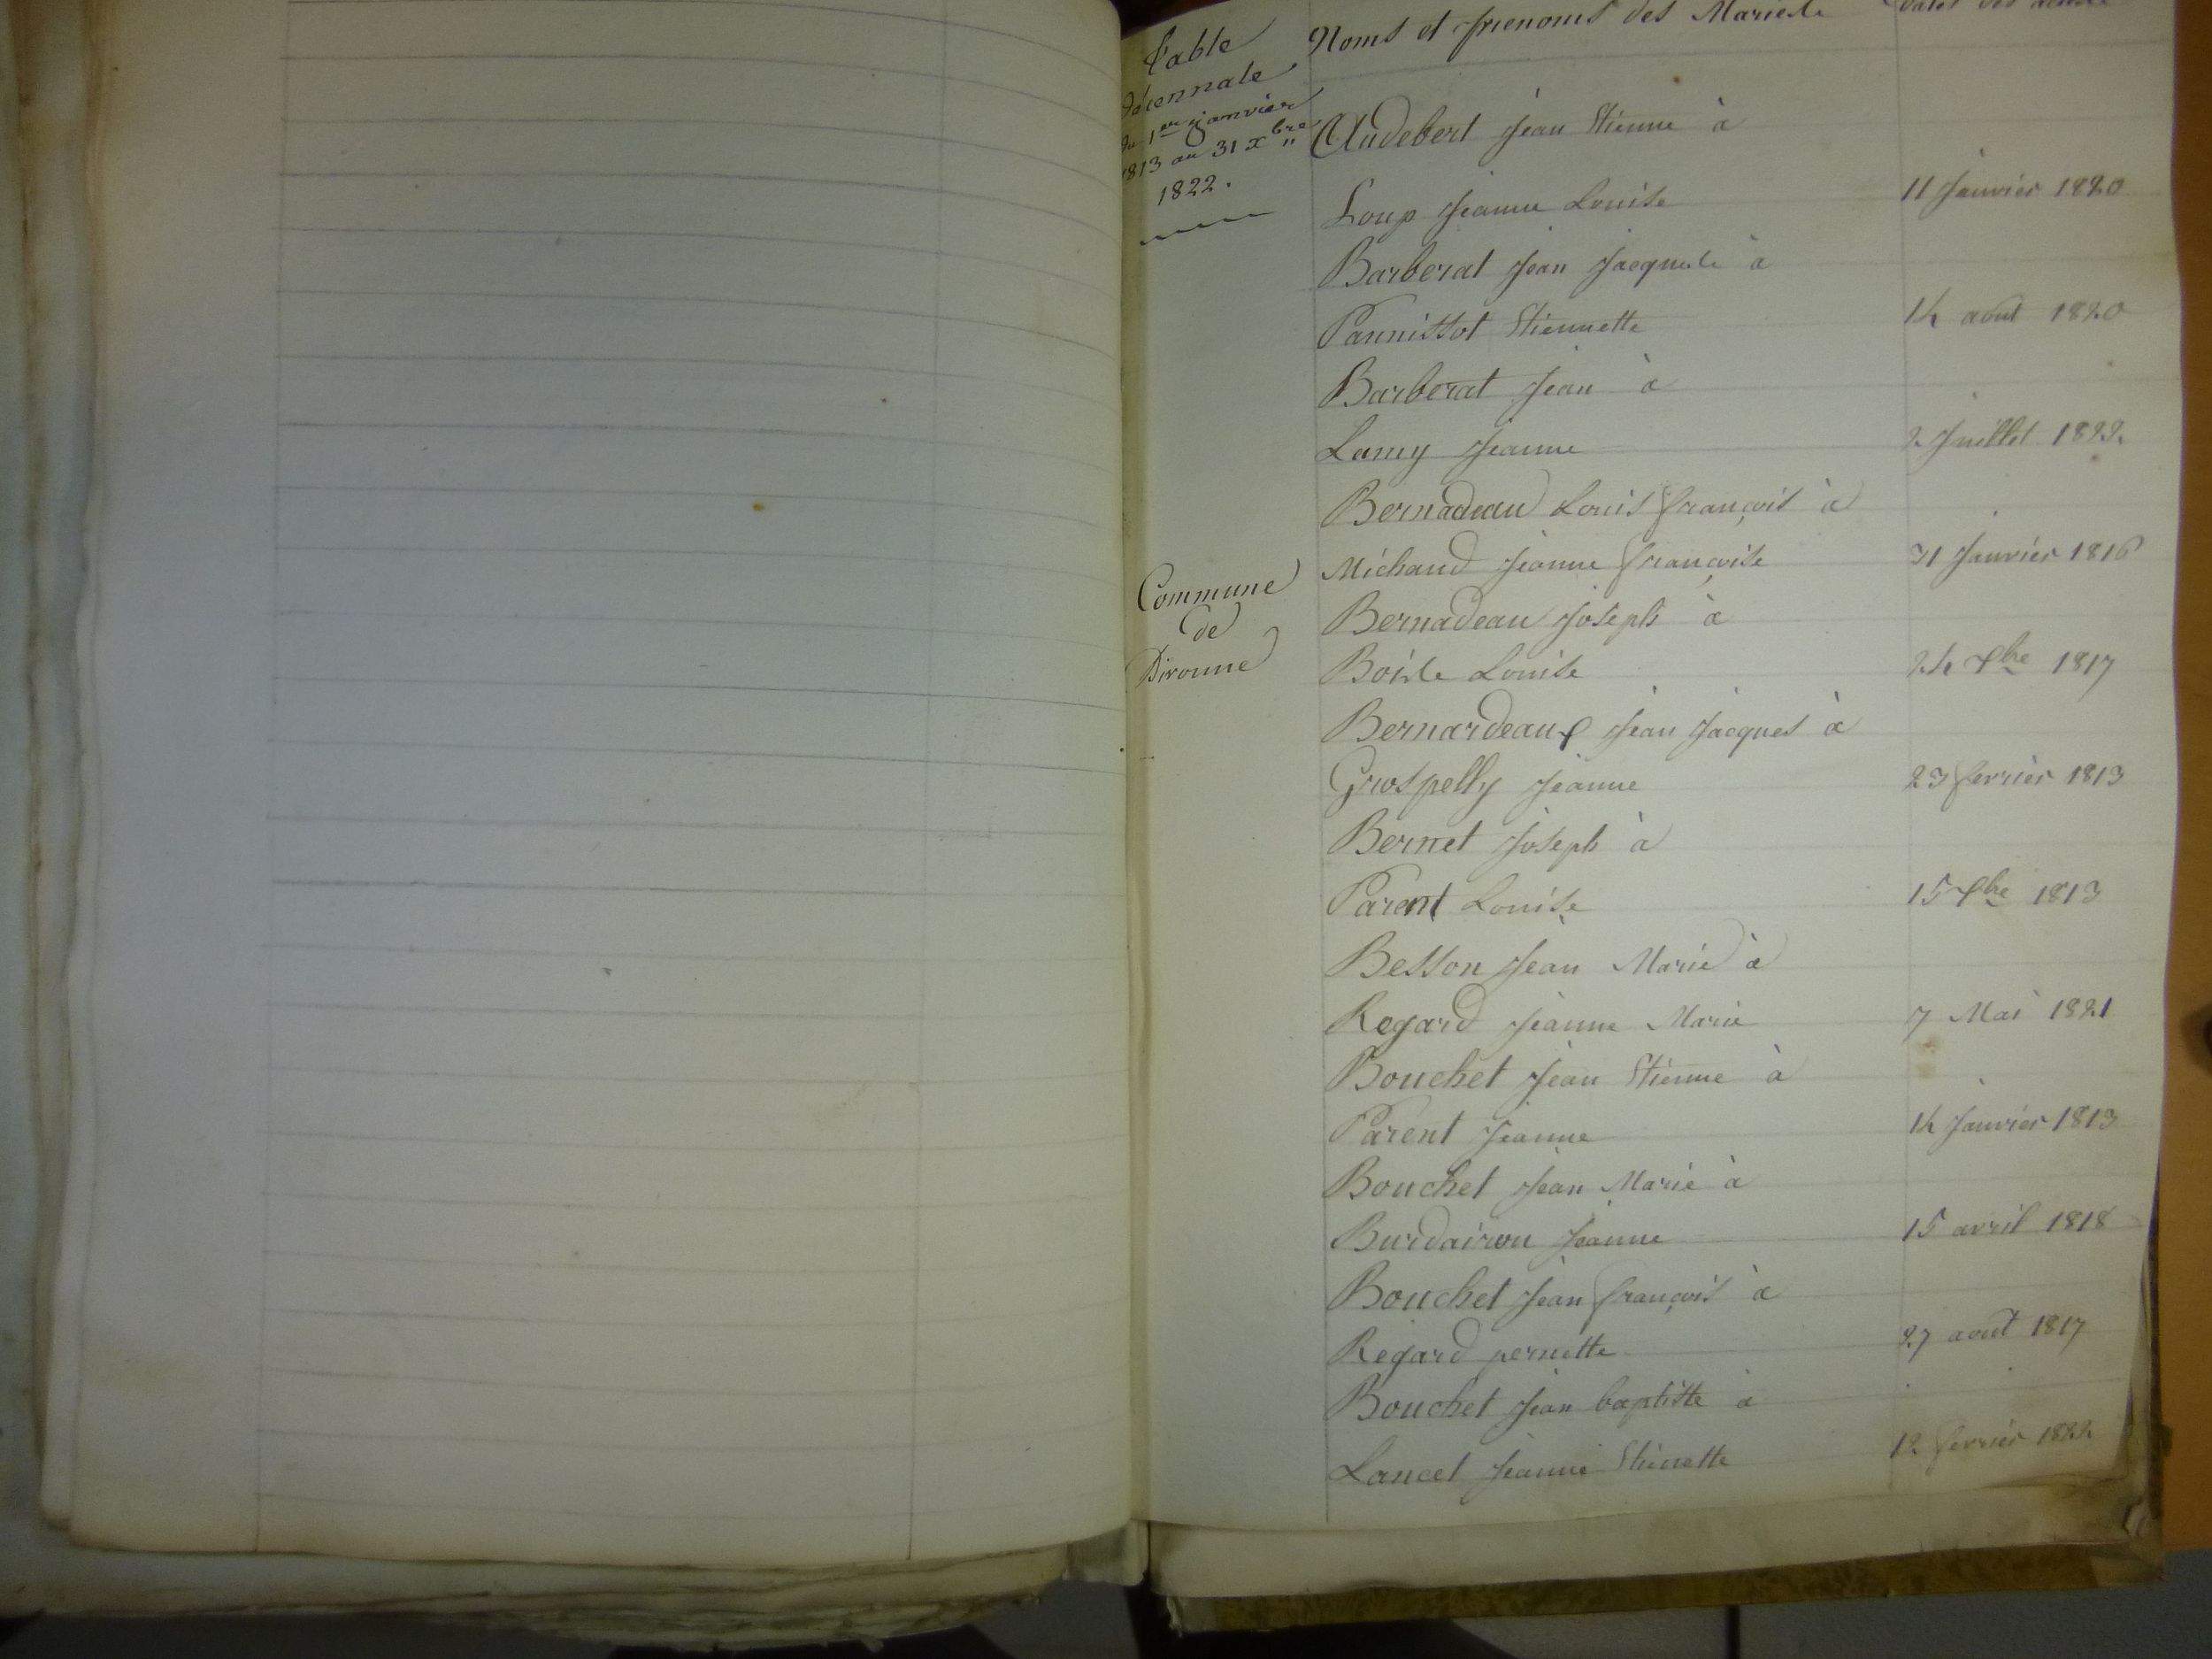 Table
décennale
du 1er janvier
1813 au 31 Xbre
1822.
Commune
de
Divonne
Noms et prenoms des Mariés
Dates des actes
Audebert Jean Etienne à
Loup Jeanne Louise 11 Janvier 1820
Barberat Jean Jacques à
Pannissot Etiennette 14 août 1820
Barberat Jean à
Lamy Jeanne 2 Juillet 1822
Bernadeau Louis françois à
Michaud Jeanne françoise 31 Janvier 1816
Bernadeau Joseph à
Louise 24 Xbre 1817
Bernardeaux Jean Jacques à
Grospelly Jeanne 23 fevrier 1813
Bernet Joseph à
Parent Louise 15 Xbre 1813
Besson Jean Marie à
Regard Jeanne Marie 7 Mai 1821
Bouchet Jean Etienne à
Parent Jeanne 14 Janvier 1813
Bouchet Jean Marie à
Burdairon Jeanne 15 avril 1818
Bouchet Jean françois à
Regard pernette 27 aout 1817
Bouchet Jean baptiste à
Lancet Jeanne Etienette 12 fevrier 1822